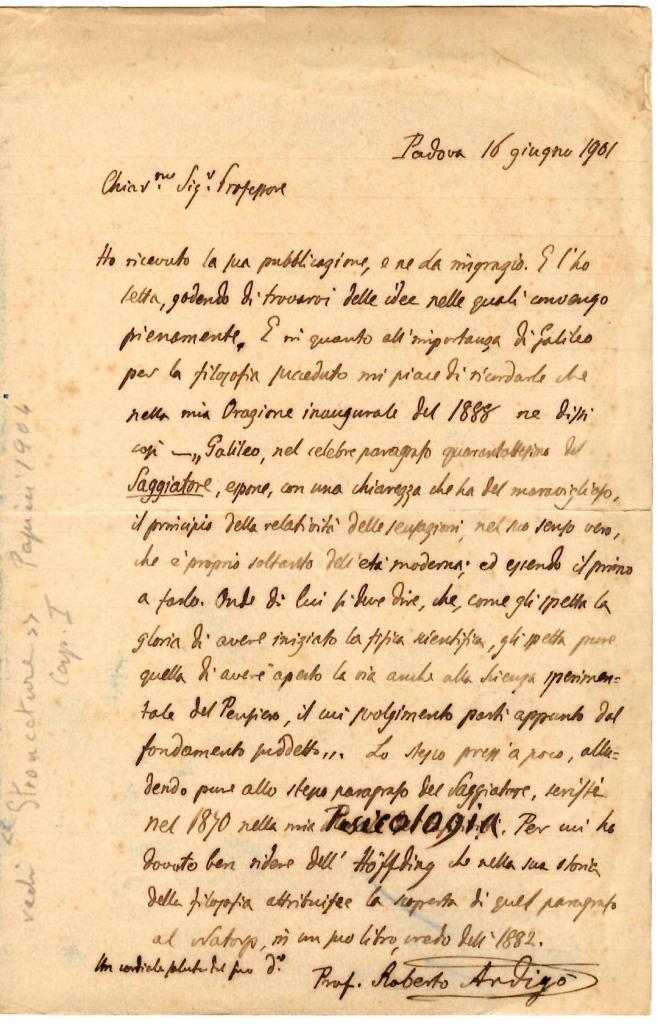 Padova 16 giugno 1901
Chiar.mo Sig.r Professore
Ho ricevuto la sua pubblicazione, e ne La ringrazio. E l'ho
letta, godendo di trovarvi delle idee nelle quali convengo
pienamente. E in quanto all'importanza di Galileo
per la filosofia mi piace di ricordarle che
nella mia Orazione inaugurale del 1888 ne dissi
così — „Galileo, nel celebre paragrafo quarantottesimo del
Saggiatore, espone, con una chiarezza che ha del maraviglioso,
il principio della relatività delle sensazioni, nel suo senso vero,
che è proprio soltanto dell'età moderna; ed essendo il primo
a farlo. Onde di lui si deve dire, che, come gli spetta la
gloria di avere iniziato la fisica scientifica, gli spetta pure
quella di avere aperto la via anche alla Scienza sperimen=
tale del Pensiero, il cui svolgimento partì appunto dal
fondamento suddetto„. Lo stesso press'a poco, allu=
dendo pure allo stesso paragrafo del Saggiatore, scrissi
nel 1870 nella mia Psicologia. Per cui ho
dovuto ben ridere dell' Höffding che nella sua storia
della filosofia attribuisce la scoperta di quel paragrafo
al Natorp, in un suo libro, credo dell' 1882.
Un cordiale saluto dal suo d.mo
Prof. Roberto Ardigò
vedi "Stroncature" Papini 1904
Cap. I